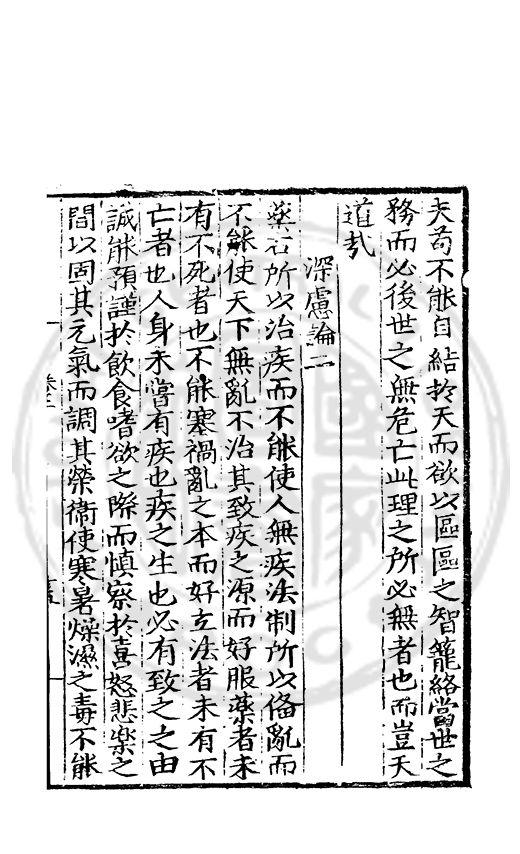 夫苟不能自結於天而欲以區區之智籠絡當世之
務而必後世之無危亡此理之所必無者也而豈天
道哉
深慮論二
藥石所以治疾而不能使人無疾法制所以備亂而
不能使天下無亂不治其致疾之源而好服藥者未
有不死者也不能塞禍亂之本而好立法者未有不
亡者也人身未嘗有疾也疾之生也必有致之之由
誠能預謹於飲食嗜欲之際而慎察於喜怒悲樂之
間以固其元氣而調其榮衞使寒暑燥濕之毒不能